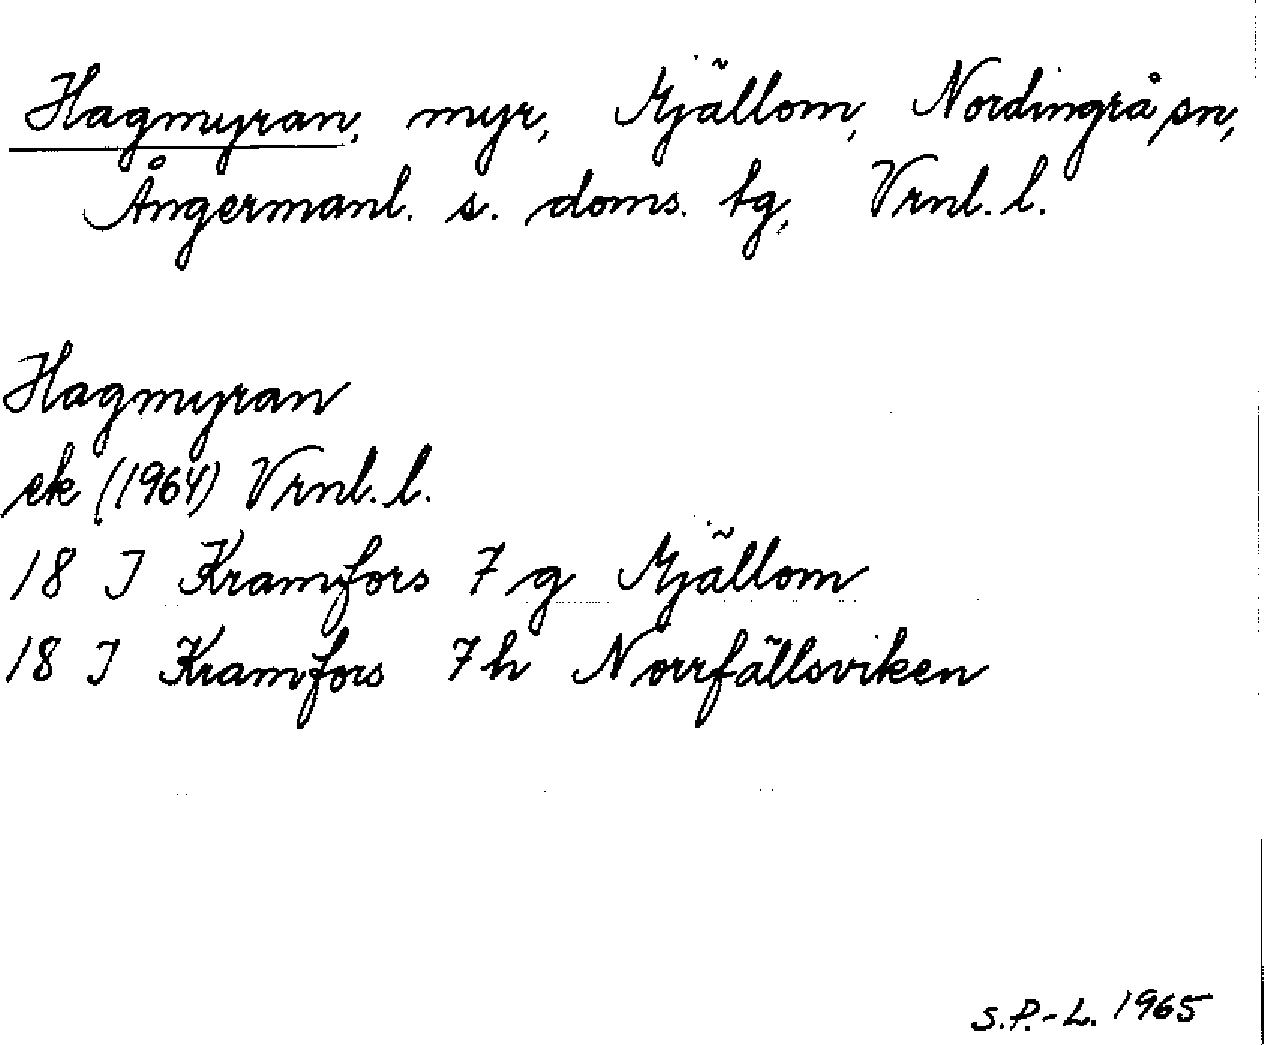 Hagmyran, myr, Mjällom, Nordingrå sn,
Ångermanl. s. doms. tg, Vrnl. l.
Hagmyran
ek (1964) Vrnl. l.
18 I Kramfors 7 g Mjällom
18 I Kramfors 7 h Norrfällsviken
S.P.-L. 1965